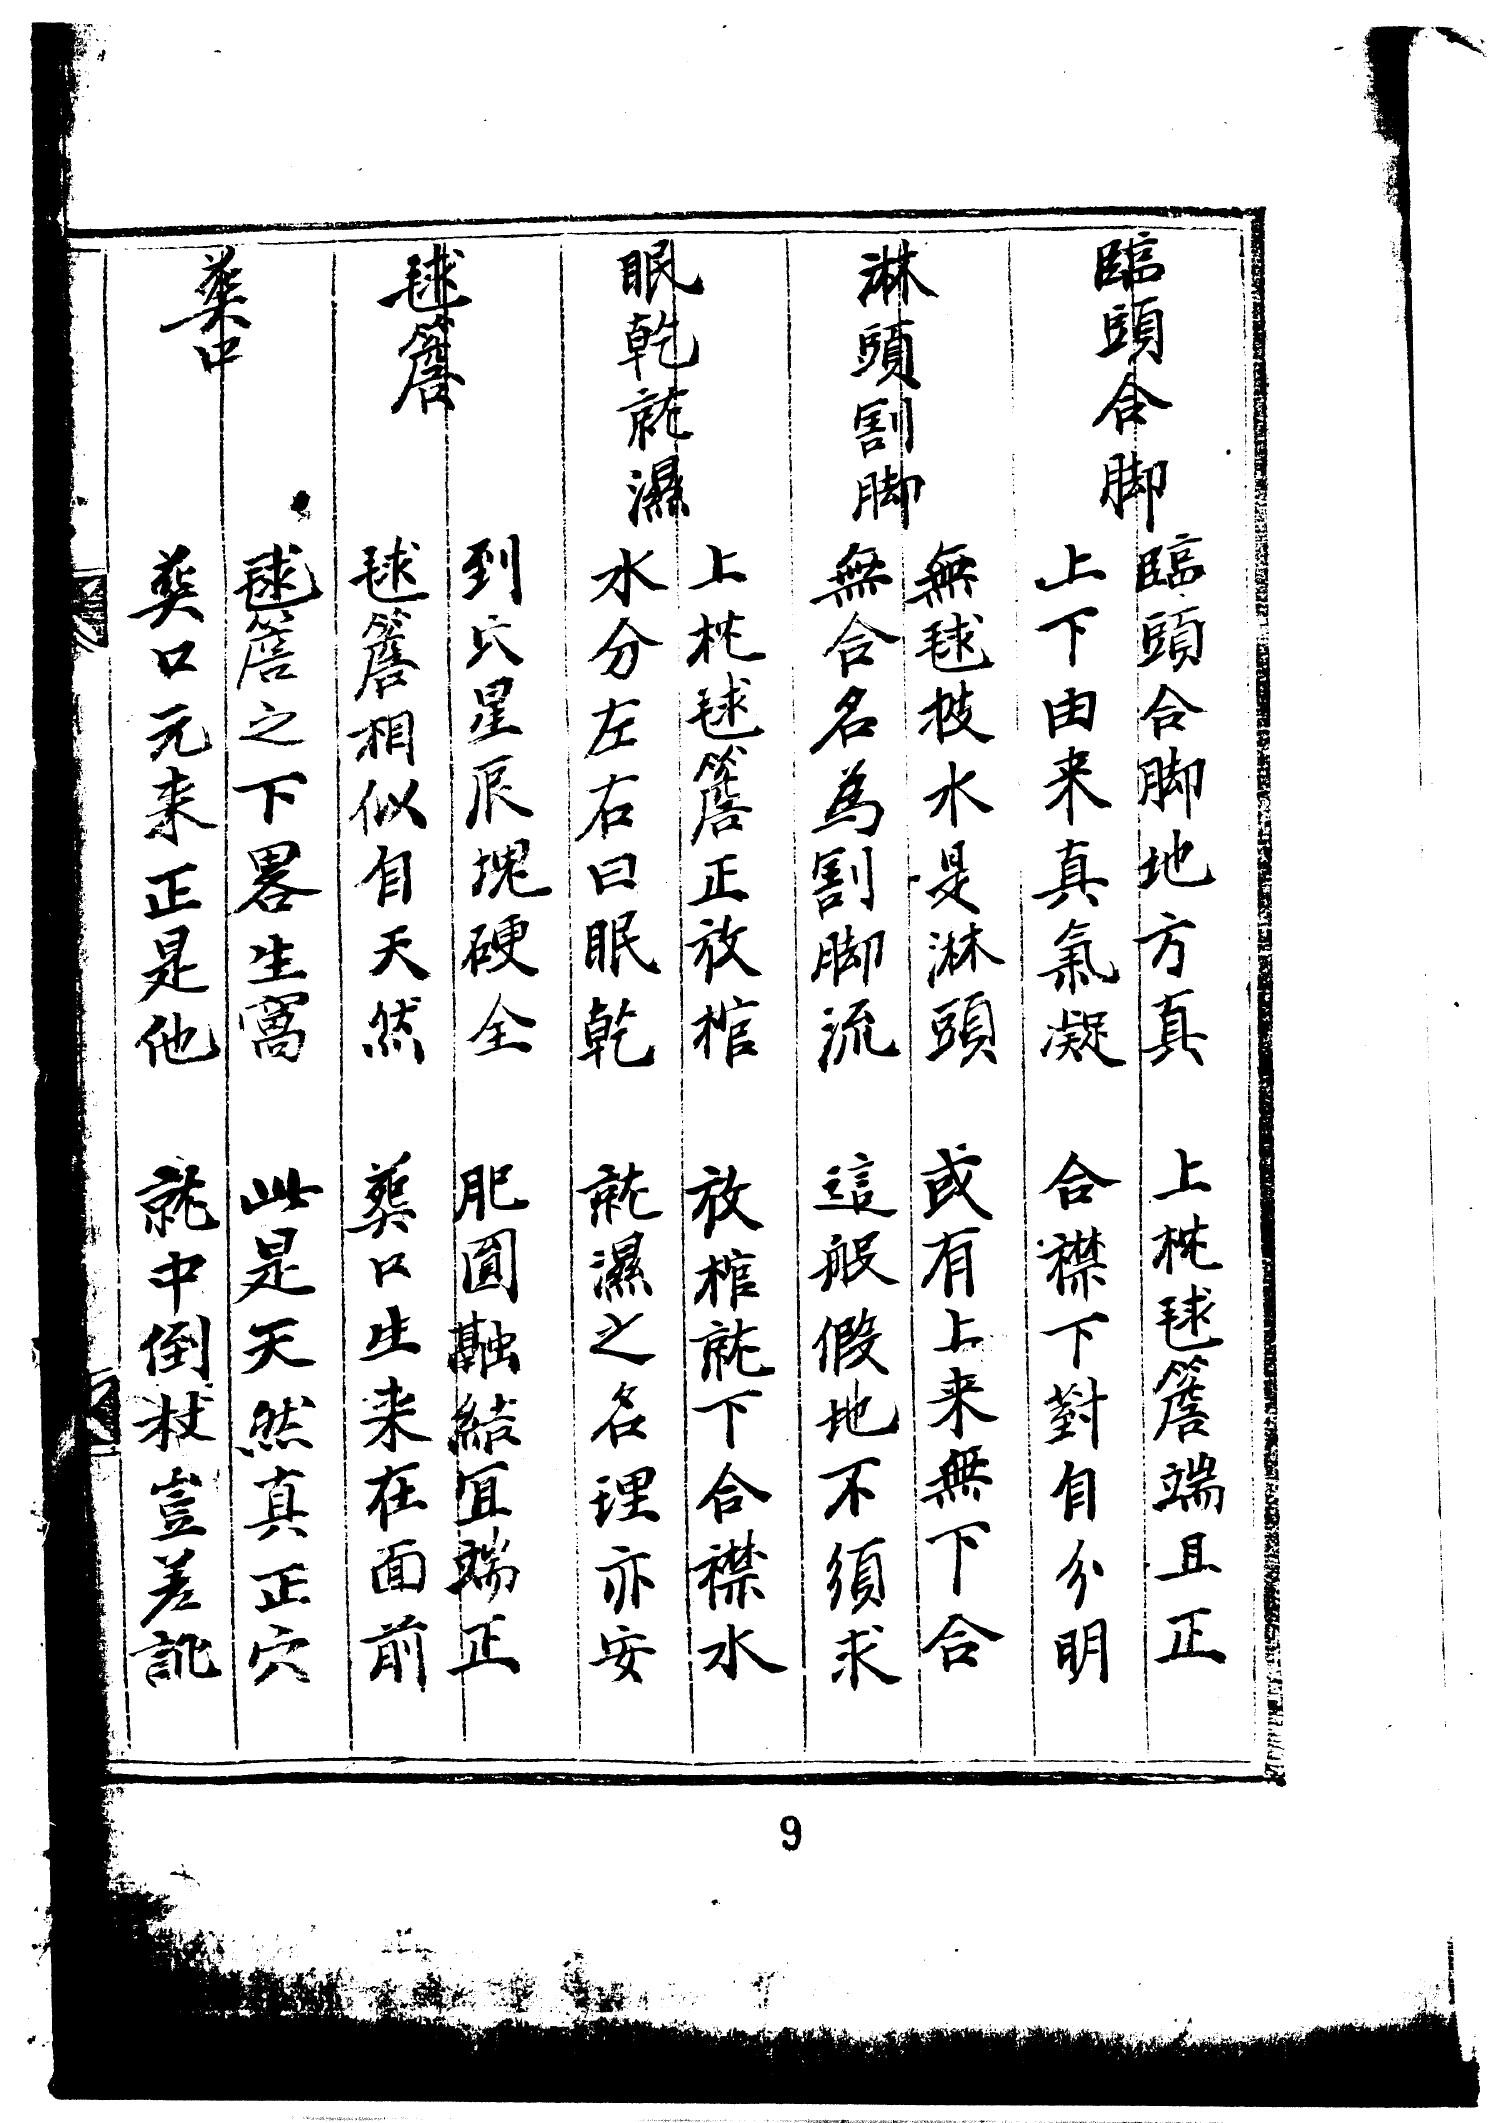 臨頭合脚
臨頭合脚地方真　上枕毬簷端且正
上下由来真氣凝　合襟下對自分明
淋頭割脚
無毬披水是淋頭　或有上来無下合
無合名為割脚流　這般假地不須求
眠乾就濕
上枕毬簷正放棺　放棺就下合襟水
水分左右曰眠乾　就濕之名理亦安
毬簷
到穴星辰塊硬全　肥圓融結宜端正
毬簷相似自天然　葬口生来在面前
葬口
毬簷之下畧生窩　此是天然真正穴
葬口元来正是他　就中倒杖豈差訛
9